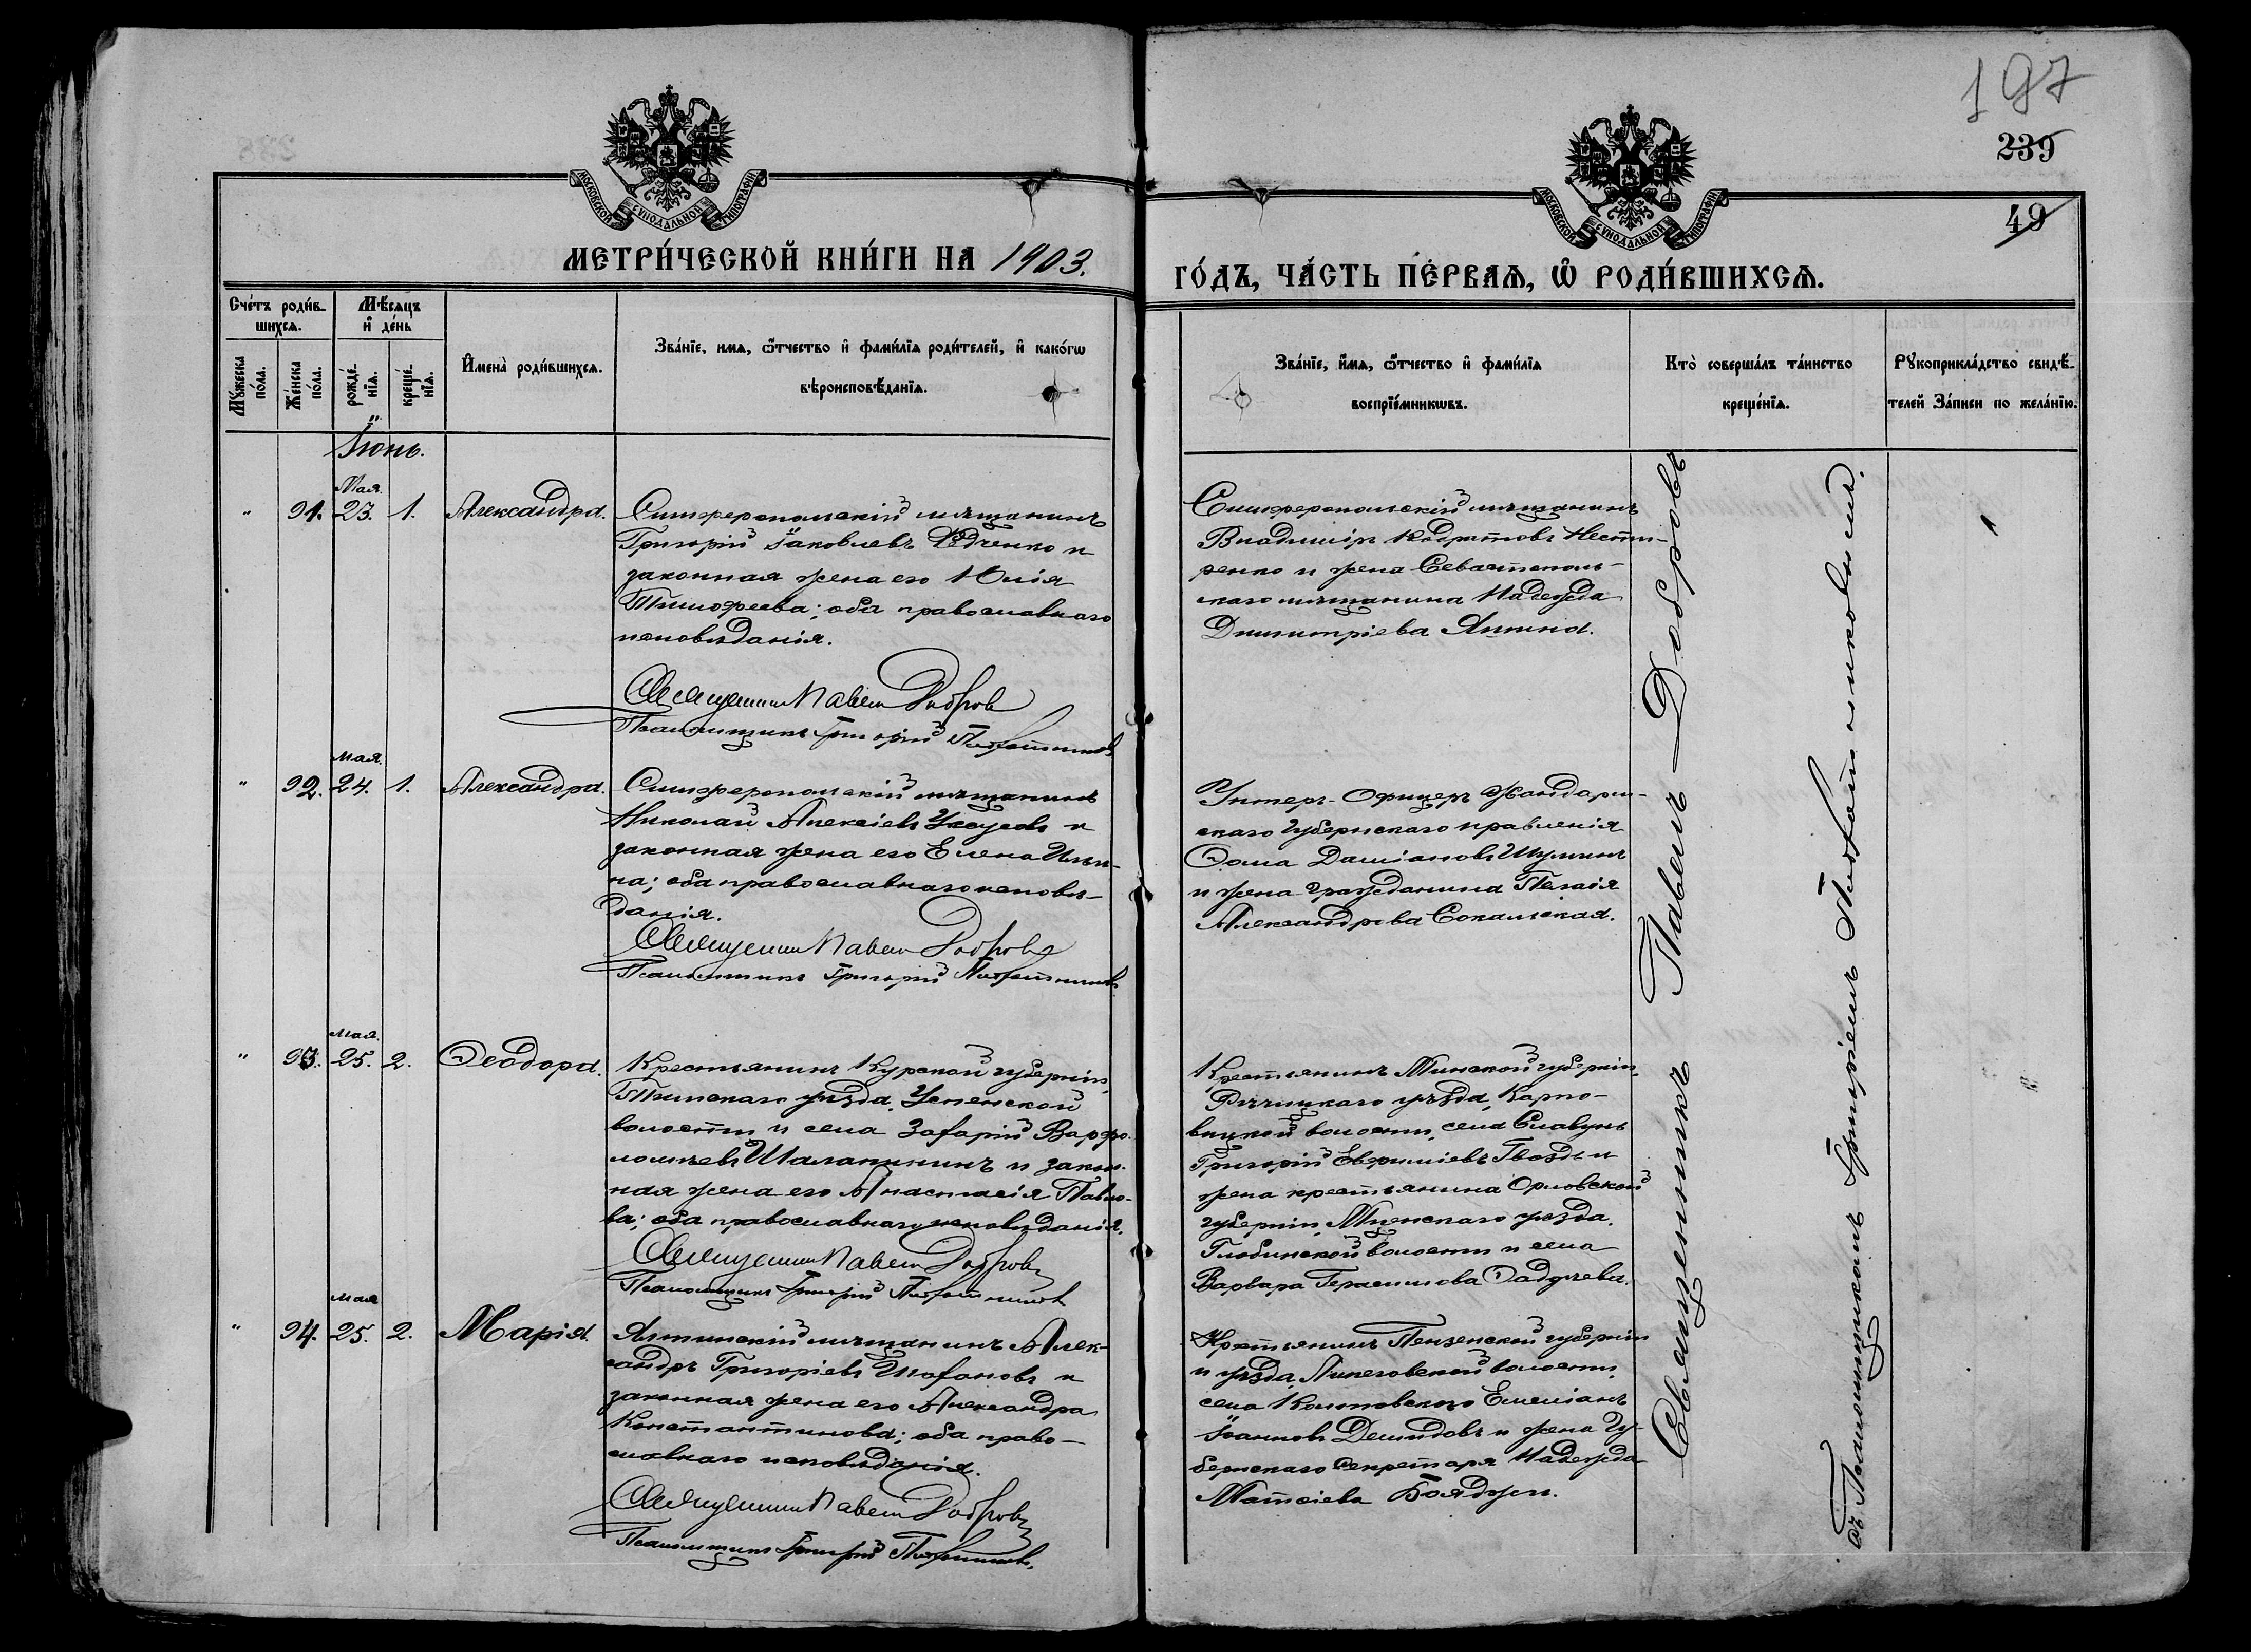 197
239
49
МОСКОВСКОЙ СѴНОДАЛЬНОЙ ТИПОГРАФІИ
МОСКОВСКОЙ СѴНОДАЛЬНОЙ ТИПОГРАФІИ
МЕТРИ́ЧЕСКОЙ КНИ́ГИ НА 1903.
ГО́ДЪ, ЧА́СТЬ ПЕ́РВАѦ, Ѽ РОДИ́ВШИХСѦ.
Сче́тъ роди́в-
шихсѧ.
Мѣ́сѧцъ
и҆ де́нь
Мꙋ́жеска
по́ла.
Же́нска
по́ла.
рожде́-
нїѧ.
креще́-
нїѧ.
И҆мена̀ роди́вшихсѧ.
Зва́нїе, имѧ, ѻ҆́тчество и҆ фами́лїѧ роди́телей, и҆ како́гѡ
вѣроисповѣ́данїѧ.
Зва́нїе, и҆́мѧ, ѻ҆́тчество и҆ фами́лїѧ
воспрїе́мникѡвъ.
Кто̀ соверша́лъ та́инство
креще́нїѧ.
Рꙋкоприкла́дство свидѣ́-
телей За́писи по жела́нїю.
Іюнь.
Мая.
" 91. 23. 1. Александра.
Симферопольскій мѣщанинъ
Григорій Іаковлевъ и
законная жена его Юлія
Тимофеева; оба православнаго
исповѣданія.
Священникъ Павелъ Добровъ
Псаломщикъ Григорій
Симферопольскій мѣщанинъ
Владиміръ Кодратовъ Несте-
ренко и жена Севастополь-
скаго мѣщанина Надежда
Димитріева
Мая.
" 92. 24. 1. Александра.
Симферопольскій мѣщанинъ
Николай Алексіевъ и
законная жена его Елена Ильи-
на; оба православнаго исповѣ-
данія.
Священникъ Павелъ Добровъ
Псаломщикъ Григорій
Унтеръ-Офицеръ Жандарм-
скаго Губернскаго правленія
Ѳома Даміановъ Шуминъ
и жена гражданина Пелагія
Александрова Сокальская.
Мая.
" 93. 25. 2. Ѳеодора.
Крестьянинъ Курской губерніи,
Тимскаго уѣзда, Успенской
волости и села Захарій Варфо-
ломѣевъ Шалапининъ и закон-
ная жена его Анастасія Павло-
ва; оба православнаго исповѣданія.
Священникъ Павелъ Добровъ
Псаломщикъ Григорій
Крестьянинъ Минской губерніи,
Рѣчицкаго уѣзда, Карпо-
вицкой волости, села
Григорій Евфиміевъ Гвоздь и
жена крестьянина Орловской
губерніи, Мценскаго уѣзда,
волости и села
Варвара Герасимова
Мая
" 94. 25. 2. Марія.
Ялтинскій мѣщанинъ Алек-
сандръ Григоріевъ Шафановъ и
законная жена его Александра
Константинова; оба право-
славнаго исповѣданія.
Священникъ Павелъ Добровъ
Псаломщикъ Григорій
Крестьянинъ Пензенской губерніи
и уѣзда, волости,
села Емеліанъ
Іоанновъ Демидовъ и жена Гу-
бернскаго Секретаря Надежда
Матѳіева Бояджи.
Священникъ Павелъ Добровъ
съ Псаломщикомъ Григоріемъ